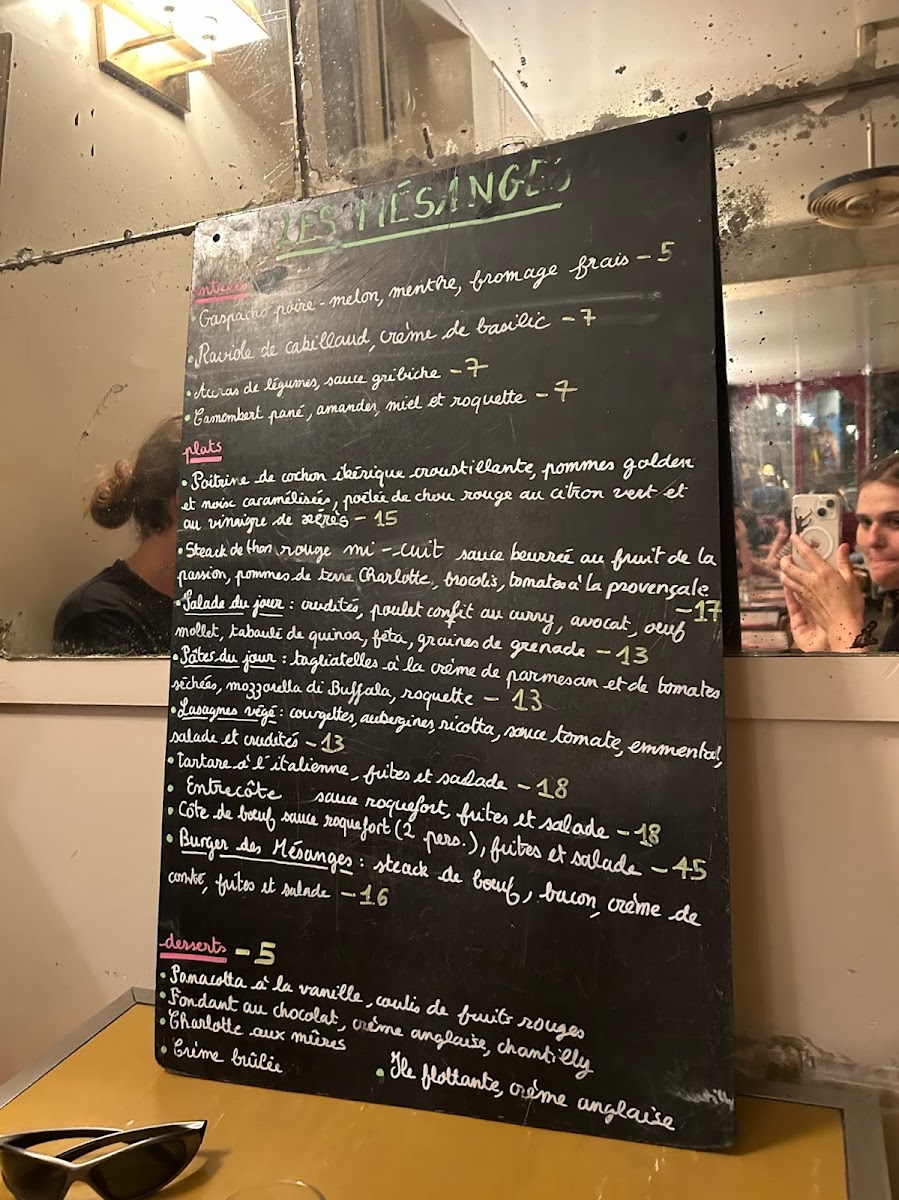 LES MÉSANGES
entrées
• Gaspacho poire-melon, menthe, fromage frais - 5
• Raviole de cabillaud, crème de basilic - 7
• Accras de légumes, sauce gribiche - 7
• Camembert pané, amandes, miel et roquette - 7
plats
• Poitrine de cochon ibérique croustillante, pommes golden
et noix caramélisées, poêlée de chou rouge au citron vert et
au vinaigre de xérès - 15
• Steack de thon rouge mi-cuit sauce beurrée au fruit de la
passion, pommes de terre Charlotte, brocolis, tomates à la provençale
- 17
• Salade du jour : crudités, poulet confit au curry, avocat, oeuf
mollet, taboulé de quinoa, feta, graines de grenade - 13
• Pâtes du jour : tagliatelles à la crème de parmesan et de tomates
séchées, mozzarella di Buffala, roquette - 13
• Lasagnes végé : courgettes, aubergines, ricotta, sauce tomate, emmental,
salade et crudités - 13
• Tartare à l'italienne, frites et salade - 18
• Entrecôte sauce roquefort, frites et salade - 18
• Côte de boeuf sauce roquefort (2 pers.), frites et salade - 45
• Burger des Mésanges : steack de boeuf, bacon, crème de
comté, frites et salade - 16
desserts - 5
• Panacotta à la vanille, coulis de fruits rouges
• Fondant au chocolat, crème anglaise, chantilly
• Charlotte aux mûres
• Crème brûlée
• Ile flottante, crème anglaise